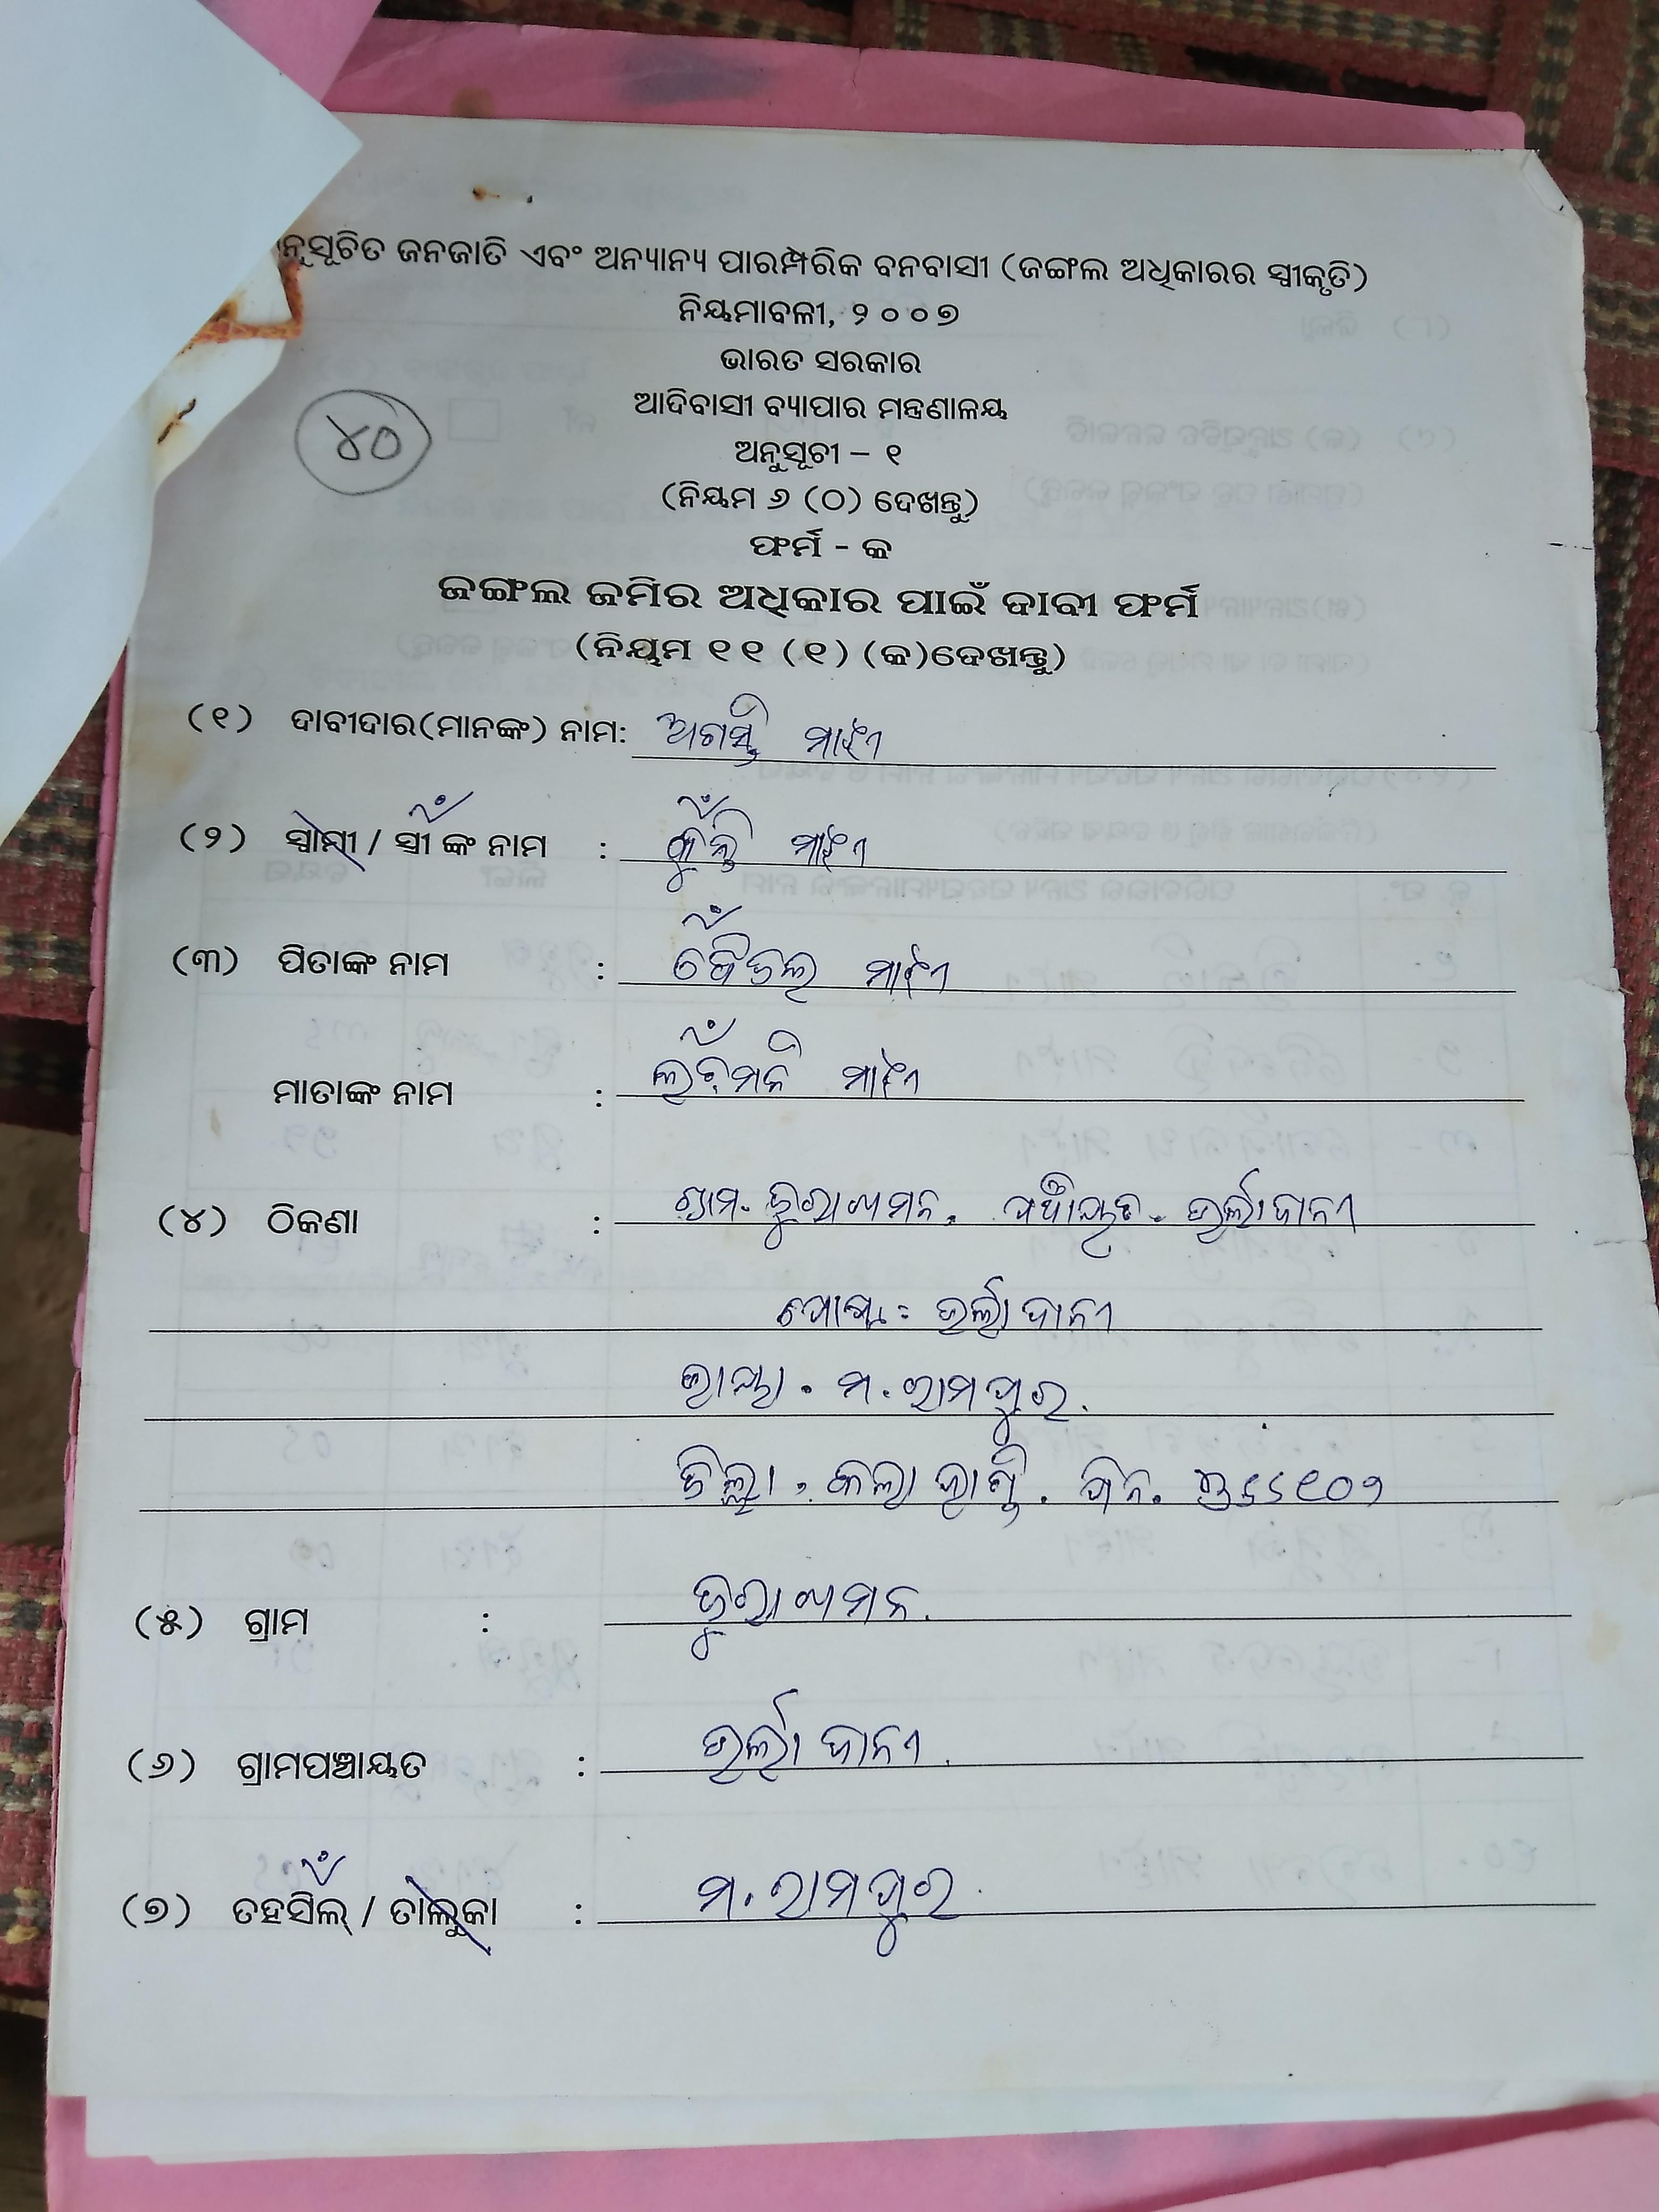 ନୁସୂଚିତ ଜନଜାତି ଏବଂ ଅନ୍ୟାନ୍ୟ ପାରମ୍ପରିକ ବନବାସୀ (ଜଙ୍ଗଲ ଅଧିକାରର ସ୍ୱୀକୃତି)
ନିୟମାବଳୀ, ୨୦୦୭
ଭାରତ ସରକାର
ଆଦିବାସୀ ବ୍ୟାପାର ମନ୍ତ୍ରଣାଳୟ
୪୦
ଅନୁସୂଚୀ – ୧
(ନିୟମ ୬ (୦) ଦେଖନ୍ତୁ)
ଫର୍ମ - କ
ଜଙ୍ଗଲ ଜମିର ଅଧିକାର ପାଇଁ ଦାବୀ ଫର୍ମ
(ନିୟମ ୧୧ (୧) (କ)ଦେଖନ୍ତୁ)
(୧) ଦାବୀଦାର(ମାନଙ୍କ) ନାମ: ଅଗସ୍ତି ମାଝୀ
(୨) ସ୍ୱାମୀ / ସ୍ତ୍ରୀ ଙ୍କ ନାମ : ମାଝୀ
(୩) ପିତାଙ୍କ ନାମ : ମାଝୀ
ମାତାଙ୍କ ନାମ : ମାଝୀ
(୪) ଠିକଣା : ଗ୍ରାମ. ପଞ୍ଚାୟତ. ଉର୍ଲାଦାନୀ
ପୋଷ୍ଟ : ଉର୍ଲାଦାନୀ
ଭାୟା. ମ. ରାମପୁର.
ଜିଲ୍ଲା. କଳାହାଣ୍ଡି. ପିନ.
(୫) ଗ୍ରାମ :
(୬) ଗ୍ରାମପଞ୍ଚାୟତ : ଉର୍ଲାଦାନୀ.
(୭) ତହସିଲ୍ / ତାଲୁକା : ମ. ରାମପୁର.